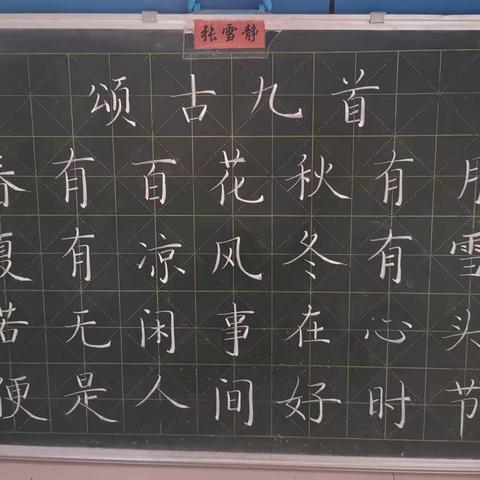 张雪静
颂古九首
春有百花秋有月
夏有凉风冬有雪
若无闲事在心头
便是人间好时节